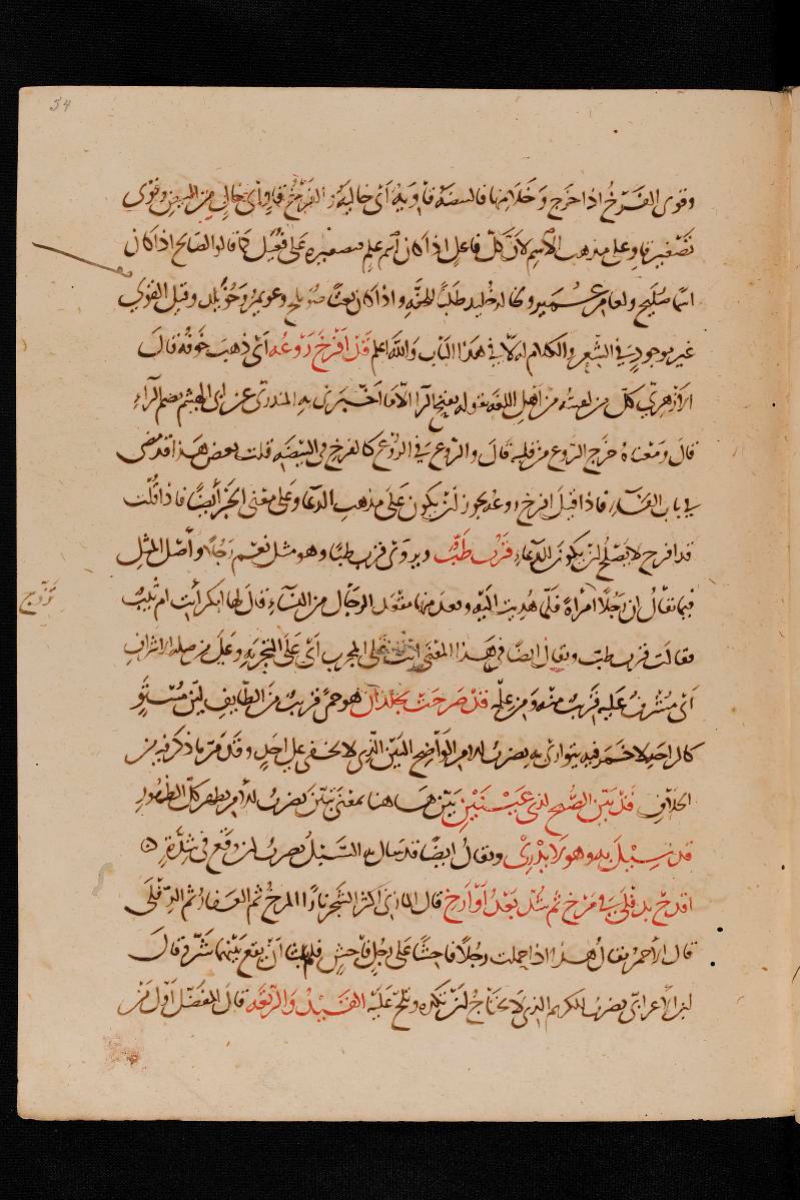 54
وقوى الفَرْخُ اذا خرَج وَخَلَا منها فالبيضة قاوِيَة اَى خاليَة والفَرْخُ قاوٍ اى خالٍ من البيض وقُوَى
تَصْغير قاوٍ على مذهب الاسم لانَّ كلّ فاعل اذا كان اسم علم فتصغيره على فُعَيْل كما قالوا لصَالح اذا كان
اسمًا صُلَيح ولعامر عُمَير وكالد خُلَيد طلبًا للخفّة واذا كان نعتًا صُوَيلح وعويمر وخُوَيلد وقيل القوىّ
غير موجود فى الشِعر والكلام الّا فى هَذا الكتاب والله اعلم قَدْ اَفْرَخَ رَوْعُهُ اَىْ ذهب خَوفُه قالَ
الازهرىّ كلّ من لقيته من اَهل اللغة يقوله بفتح الرا الا ما اَخْبرنى به المنذرىّ عن ابى الهيثم بضم الرآءِ
قالَ وَمَعْناهُ خرَج الرَّوع من قلبه قالَ والرَّوع فى الرُّوْع كالفرخ فى البَيْضَة قلت بعض هَذا قد مضى
فى باب الفَآءِ فاذا قيلَ افرخ روعه يجوز اَنْ يكون عَلَى مذهب الدعا وعَلى معنى الخبَر اَيضًا فاذا قُلْت
قد افرخ لا يَصْلُحُ ان يكون للدعآءِ قَرُبَ طِبٌّ ويروى قرب طبًّا وهو مثل نعْم رَجُلًا واَصْل المثل
فيما يقالُ ان رَجُلًا تزوّج امْرأةً فلمّا هُديت اليه وقعد منها مقعد الرجَال من النسَآءِ قالَ لها ابكر اَنتِ ام ثيّب
فقالَت قرب طبّ ويقال ايضًا فى هَذا المعنَى انت على المجرب اَىْ عَلَى التجربة وعلَى من صلة الاشراف
اَىْ مُشْرفٌ عَليه قَرِيبٌ منه ومن علمه قَدْ صَرَحَتْ بجلدان هو حِمًى قريبٌ من الطَّايف ليّن مُسْتَوٍ
كالراحة لا خَمَر فيه يتوارى به يضربُ للامر الوَاضِح البَيّن الّذى لا يخفى على احَدٍ وقَد مَرّ ما ذكر فيه من
الخلافِ قَدْ بَيَّن الصُّبح لذى عَيْنَيْنِ بَيَّن هَاهنا بمعْنى تبَيَّنَ يضربُ للامر يظهر كلّ الظهُور
قد سِيْلَ به وهو لَا يَدْرِىْ ويقالُ ايضًا قد سَال به السَّيْلُ يضربُ لمن وقَع فى شِدَّةٍ
اقدحْ بدفلَى فى مَرْخ ثم شُدّ بَعْدُ اَوْ اَرْخ قالَ المازنى اكثر الشَجر نارًا المرخُ ثم العَفارُ ثم الدِّفْلَى
قال الاحمرُ يقالُ هذا اذا حملت رجُلًا فاحِشًا على رجُلٍ فاحِش فلم يلبثا اَنْ يقع بَيْنهما شَرّ وقالَ
ابن الاعرابىّ يضربُ للكريم الذى لَا يحتَاجُ اَنْ تكدّه وتلحّ عَليه القَيْدُ وَالرَّتعَة قالَ المفضّل اَوّل مَنْ
تزوّج